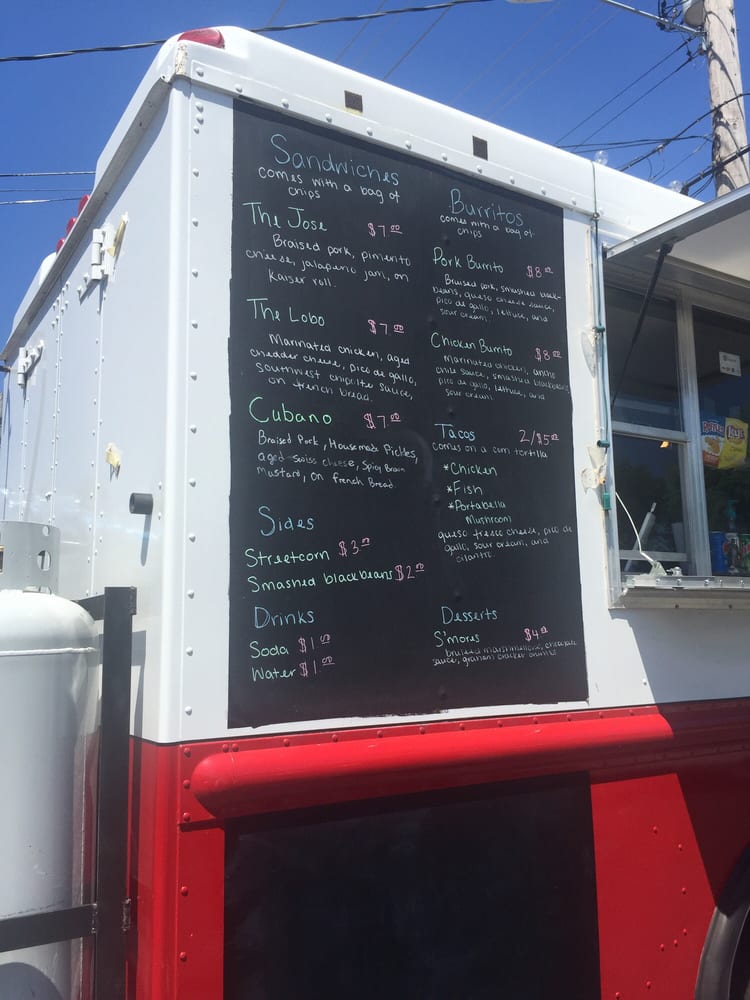 Sandwiches
comes with a bag of
chips
The Jose $7.00
Braised pork, pimento
cheese, jalapeno jam, on
Kaiser roll.
The Lobo $7.00
Marinated chicken, aged
chedder cheese, pico de gallo,
southwest chipolte sauce,
on french bread.
Cubano $7.00
Braised Pork, Housemade Pickles,
aged swiss cheese, Spicy Brown
Mustard, on French Bread.
Sides
Streetcorn $3.00
Smashed blackbeans $2.00
Drinks
Soda $1.00
Water $1.00
Burritos
comes with a bag of
chips
Pork Burrito $8.00
Braised pork, smashed black-
beans, queso cheese sauce,
pico de gallo, lettuce, and
sour cream.
Chicken Burrito $8.00
Marinated chicken, ancho
chile sauce, smashed blackbeans,
pico de gallo, lettuce, and
sour cream
Tacos 2/$5.00
comes on a corn tortilla
*Chicken
*Fish
*Portabella
Mushroom
queso fresco cheese, pico de
gallo, sour cream, and
cilantro.
Desserts
S'mores $4.00
marshmellows, chocolate
sauce, graham cracker
Ruffles
Lay's